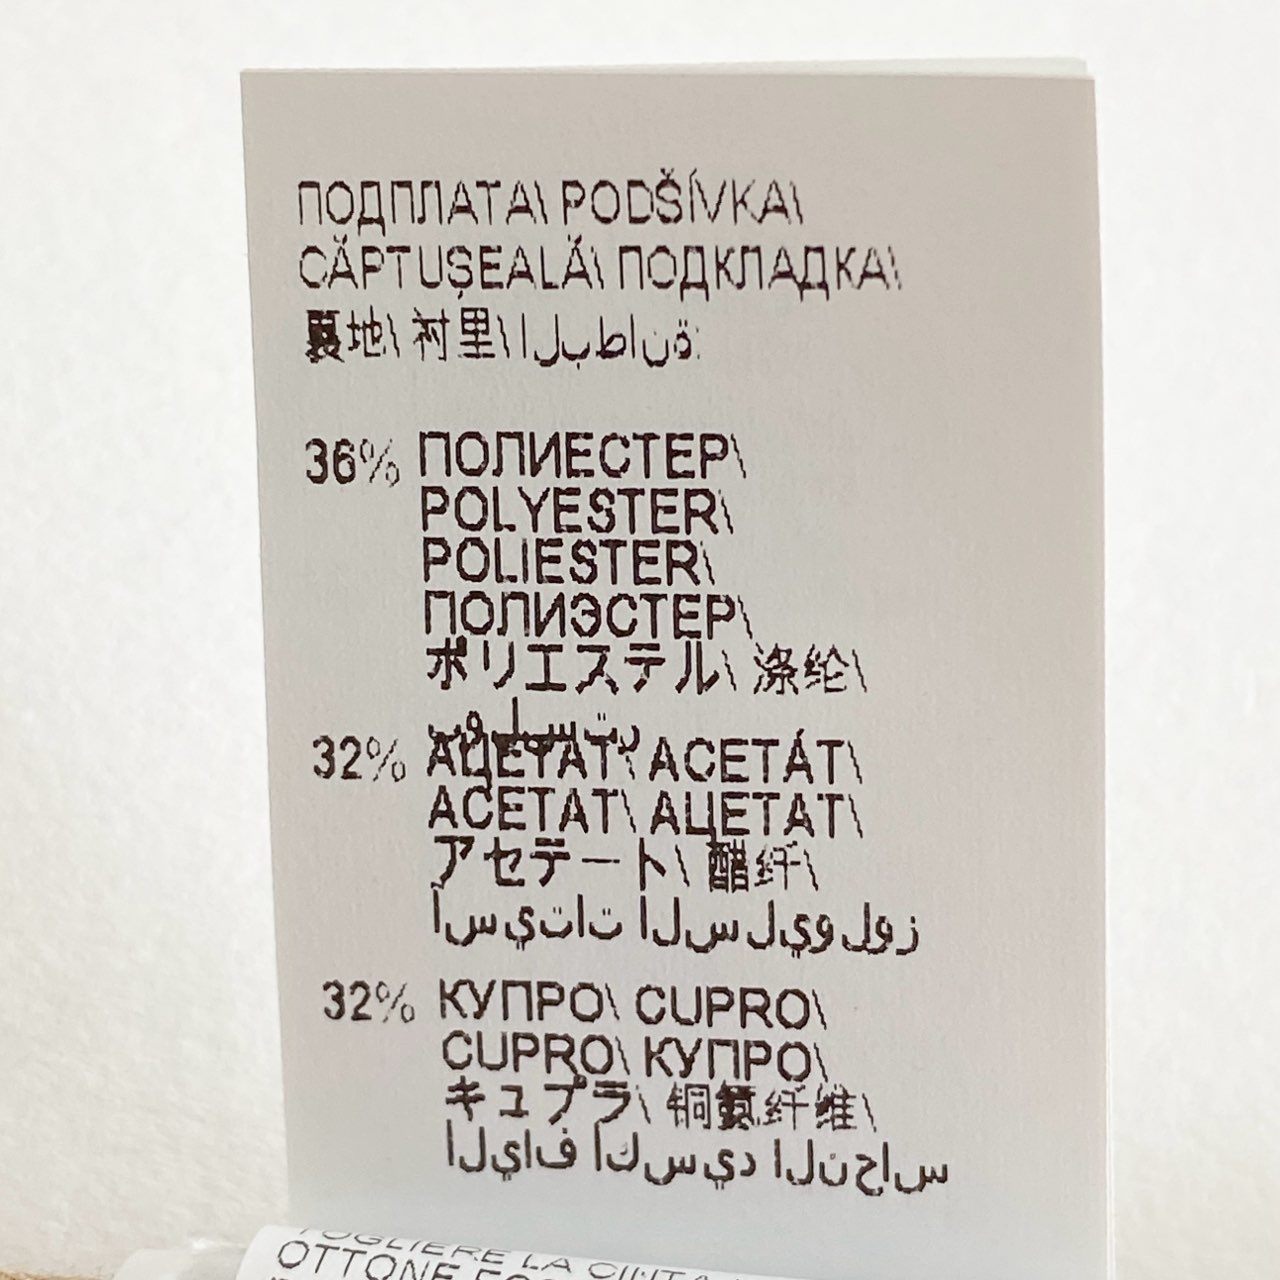 ПОДПЛАТА\ PODŠÍVKA\
CĂPTUȘEALĂ\ ПОДКЛАДКА\
裏地\ 衬里\ البطانة:
36% ПОЛИЕСТЕР\
POLYESTER\
POLIESTER\
ПОЛИЭСТЕР\
ポリエステル\ 涤纶\
بوليستر
32% АЦЕТАТ\ ACETÁT\
ACETAT\ АЦЕТАТ\
アセテート\ 醋纤\
اسيتات السليولوز
32% КУПРО\ CUPRO\
CUPRO\ КУПРО\
キュプラ\ 铜氨纤维\
الياف اكسيد النحاس
TOGLIERE LA CINTA
OTTONE